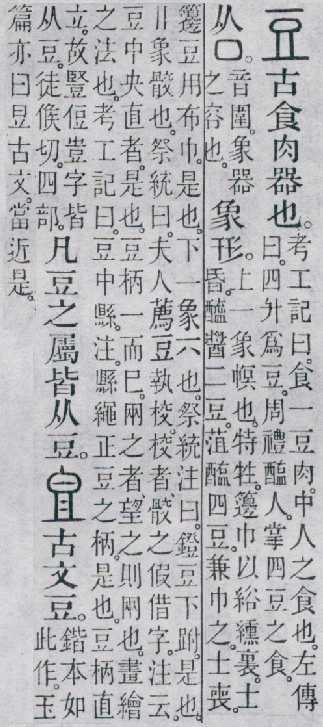 豆古食肉器也。考工記曰。食一豆肉。中人之食也。左傳
曰。四升爲豆。周禮醢人。掌四豆之食。
从口。音圍。象器
之容也。
象形。上一象幎也。特牲。籩巾以綌纁裏。士
昏醯醬二豆。菹醢四豆。兼巾之。士喪
籩豆用布巾。是也。下一象丌也。祭統注曰。鐙豆下跗。是也。
丨丨象骹也。祭統曰。夫人薦豆執校。校者、骹之假借字。注云
豆中央直者。是也。豆柄一而已。兩之者、望之則兩也。畫繪
之法也。考工記曰。豆中縣。注。縣繩正豆之柄。是也。豆柄直
立。故豎侸豈字皆
从豆。徒候切。四部。
凡豆之屬皆从豆。古文豆。鍇本如
此作。玉
篇亦曰𣅋古文。當
近是。